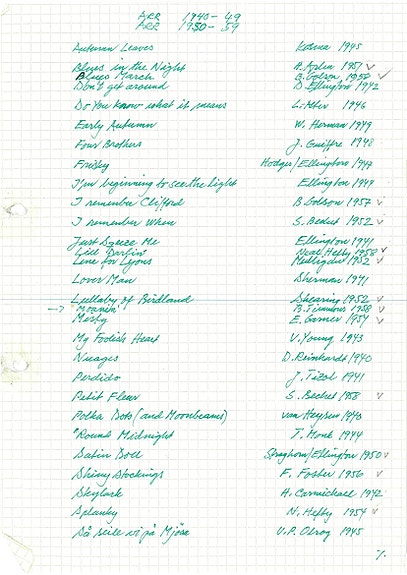 ARR 1940-49
ARR 1950-59
Autumn Leaves Kosma 1945
Blues in the Night H. Arlen 1951 ✓
Blues March B. Golson 1958 ✓
Don't get around D. Ellington 1942
Do You Know what it means L. Alter 1946
Early Autumn W. Herman 1949
Four Brothers J. Guiffre 1948
Frisky Hodges/Ellington 1947
I'm beginning to see the light Ellington 1944
I remember Clifford B Golson 1957 ✓
I remember When S. Bechet 1952 ✓
Just Sqeeze Me Ellington 1941
Lill Darlin' Neal Hefty 1958 ✓
Line for Lyons Mulligan 1952 ✓
Lover Man Sherman 1941
Lullaby of Birdland Shearing 1952 ✓
→ "Moanin'" B. Timmons 1958 ✓
Misty E. Garner 1954 ✓
My Foolish Heart V. Young 1943
Nuages D. Reinhardt 1940
Perdido J. Tizol 1941
Petit Fleur S. Bechet 1958 ✓
Polka Dots (and Moonbeams) van Heysen 1940
'Round Midnight T. Monk 1944
Satin Doll Strayhorn/Ellington 1950 ✓
Shiny Stockings F. Foster 1956 ✓
Skylark H. Carmichael 1942
Splanky N. Hefty 1954 ✓
Så seile vi på Mjøsa U.P. Olrog 1945